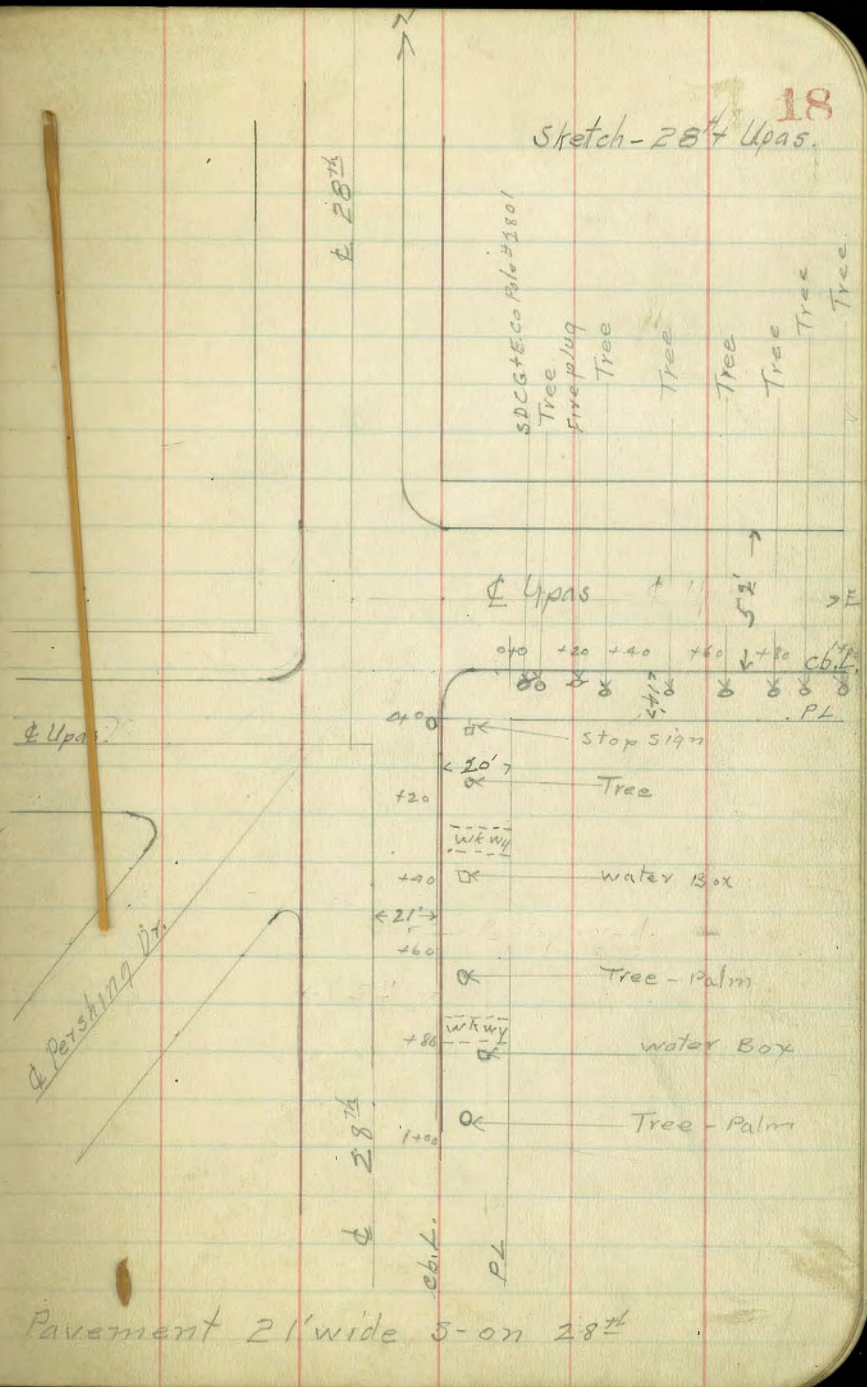 18
Sketch - 28th + Upas.
N
℄ 28th
SDCG+E.Co Pole #
Tree
Fireplug
Tree
Tree
Tree
Tree
Tree
Tree
℄ Upas
52'
E
0+0 +20 +40 +60 +80 1+00
cb.L.
14'
PL
℄ Upas
0+0
Stop Sign
20'
Tree
+20
wkwy
+40
water Box
21'
+60
Tree - Palm
wkwy
+80
water Box
℄ Pershing Dr.
Tree - Palm
1+00
℄ 28th
cb.L.
PL
Pavement 21' wide S-on 28th